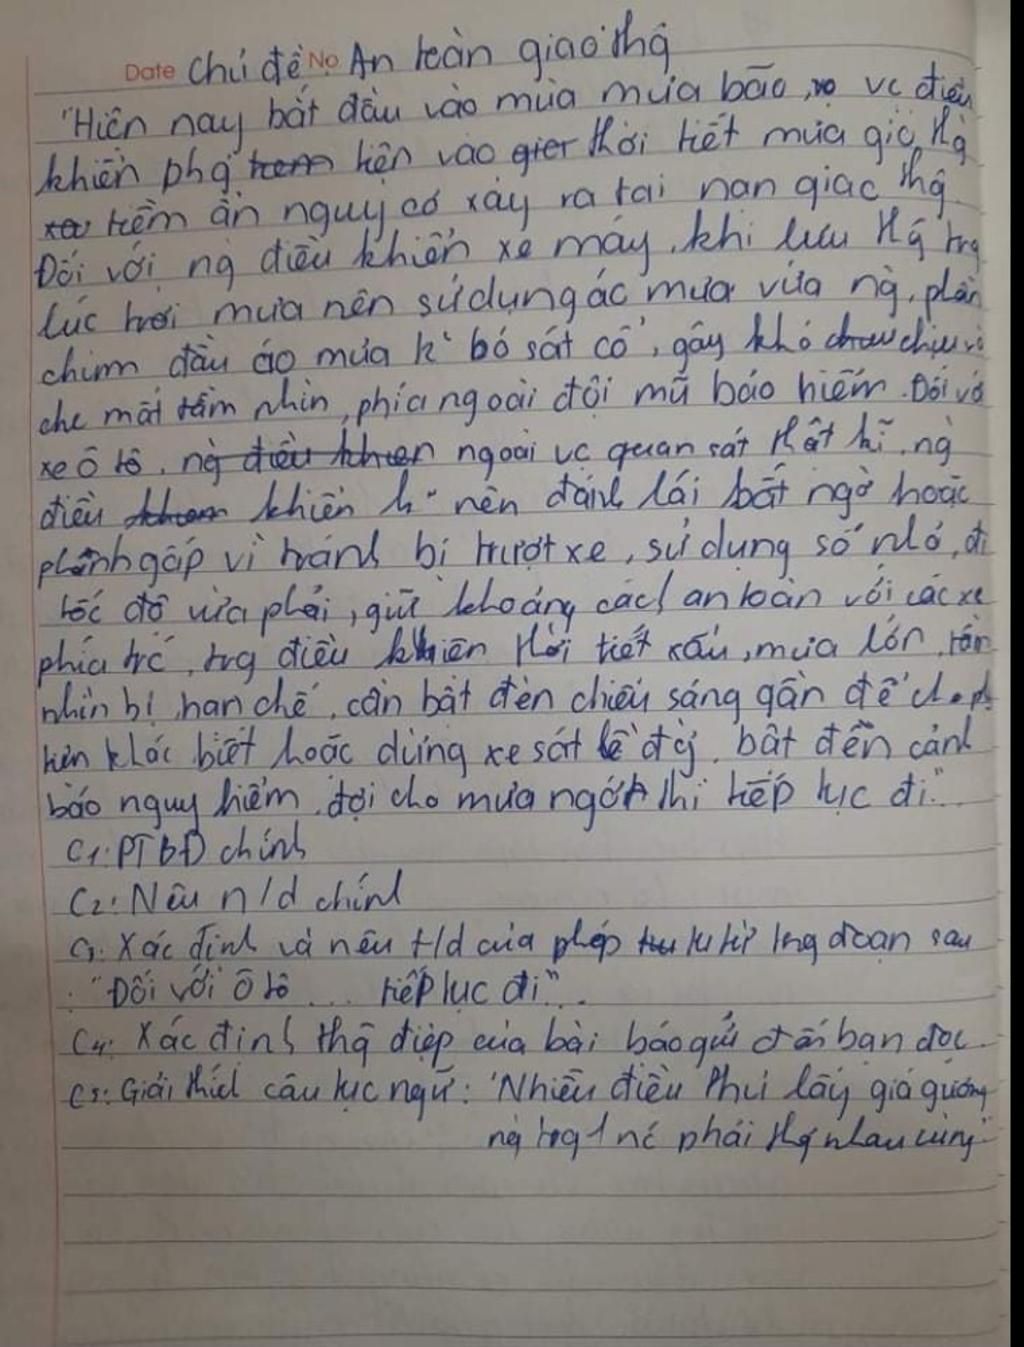 Date Chủ đề No An toàn giao thg
"Hiện nay bắt đầu vào mùa mưa bão, vc điều
khiển phg tiện vào thời tiết mưa gió,
tiềm ẩn nguy cơ xảy ra tai nạn giao thg.
Đối với ng điều khiển xe máy, khi lưu thg trg
lúc trời mưa nên sử dụng áo mưa vừa ng, phần
chùm đầu áo mưa k bó sát cổ, gây khó chịu và
che mất tầm nhìn, phía ngoài đội mũ bảo hiểm. Đối với
xe ô tô, ng điều khiển ngoài vc quan sát thật kĩ, ng
điều khiển k nên đánh lái bất ngờ hoặc
phanh gấp vì tránh bị trượt xe, sử dụng số nhỏ, đi
tốc độ vừa phải, giữ khoảng cách an toàn với các xe
phía trc, trg điều kiện thời tiết xấu, mưa lớn, tầm
nhìn bị hạn chế, cần bật đèn chiếu sáng gần để
khác biết hoặc dừng xe sát lề đg, bật đèn cảnh
báo nguy hiểm, đợi cho mưa ngớt thì tiếp tục đi."
C1: PTBĐ chính
C2: Nêu n/d chính
C3: Xác định và nêu t/d của phép tu từ trg đoạn sau
"Đối với ô tô ... tiếp tục đi".
C4: Xác định thg điệp của bài báo gửi đến bạn đọc.
C5: Giải thích câu tục ngữ: "Nhiễu điều phủ lấy giá gương
ng trg 1 nc phải thg nhau cùng"